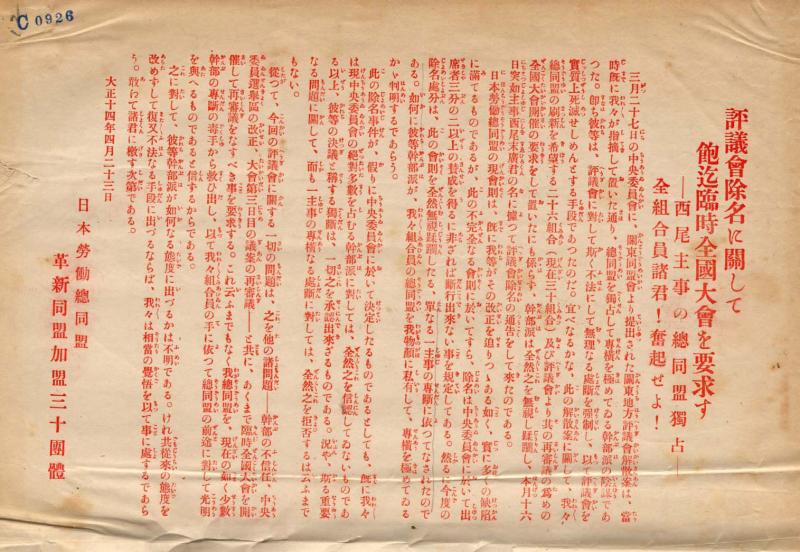 C 0926
評議會除名に關して
飽迄臨時全國大會を要求す
―西尾主事の總同盟獨占―
全組合員諸君！奮起せよ！
三月二十七日の中央委員會に、關東同盟會より提出された關東地方評議會解散案は、當
時既に我々が指摘して置いた通り、總同盟を獨占して專橫を極めてゐる幹部派の陰謀であ
つた。卽ち彼等は、評議會に對して斯く不法にして無理なる處斷を强制し、以て評議會を
實質上死滅せしめんとする手段であつたのだ。宜べなるかな、此の解散案に關して、我々
總同盟の刷新を希望する二十六組合（現在三十組合）及び評議會より其の再審議の爲めの
全國大會開催の要求をして置いたにも拘らず、幹部派は全然之を無視し蹂躪し、本月十六
日突如主事西尾末廣君の名に據つて評議會除名の通告をして來たのである。
日本勞働總同盟の現會則は、既に我々がその改正を迫りつゝある如く、實に多くの缺陷
に滿てるものであるが、此の不完全なる會則に於いてすら、除名は中央委員會に於いて出
席者三分の二以上の贊成を得るに非ざれば斷行出來ない事を規定してある。然るに今度の
除名處分は、此の會則を全然無視蹂躪したる、單なる一主事の專斷に依つてなされたので
ある。如何に彼等幹部派が、我々組合員の總同盟を我物顏に私有して、專橫を極めてゐる
かゞ判明するであらう。
此の除名事件が、假りに中央委員會に於いて決定したるものであるとしても、既に我々
は現中央委員會の絕對多數を占むる幹部派に對しては、全然之を信認してゐないものであ
る以上、彼等の決議と稱する獨斷は、一切之を承認出來ざるものである。況や、斯る重要
なる問題に關して、而も一主事の專橫なる處斷に對しては、全然之を拒否するは云ふまで
もない。
從つて、今回の評議會に關する一切の問題は、之を他の諸問題――幹部の不信任、中央
委員選擧區の改正、大會第三日目の議案の再審議――と共に、あくまで臨時全國大會を開
催して再審議をなすべき事を要求する。これ云ふまでもなく、我總同盟を、現在の如き少數
幹部の專斷の毒手から救ひ出し、以て我々組合員の手に依つて總同盟の前途に對して光明
を與へるものであると信ずるからである。
之に對して、彼等幹部派が如何なる態度に出づるかは不明である。けれ共從來の態度を
改めずして復又不法なる手段に出づるならば、我々は相當の覺悟を以て事に處するであら
う。敢へて諸君に檄す次第である。
大正十四年四月二十三日
日本勞働總同盟
革新同盟加盟三十團體